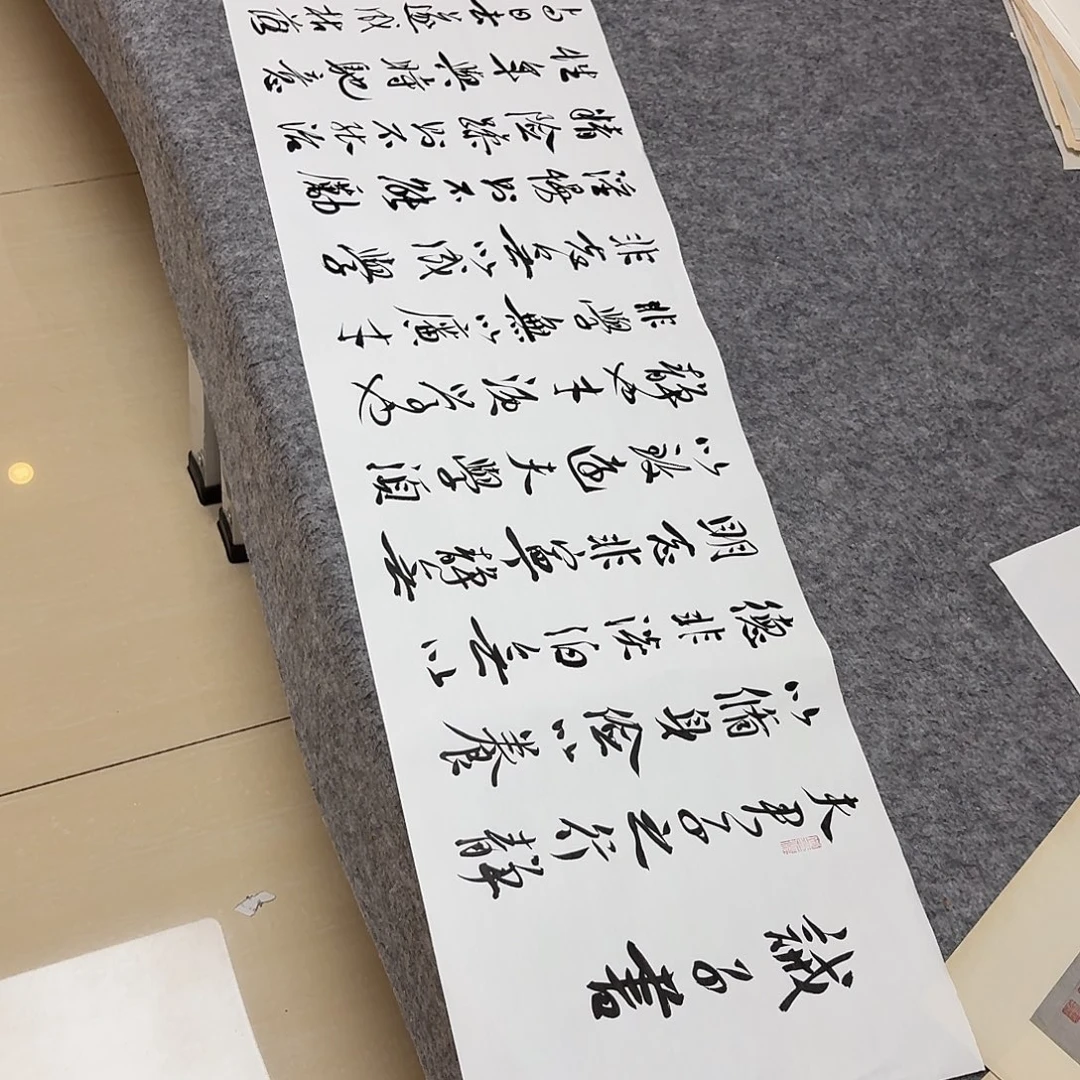 誡子書
夫君子之行靜
以脩身儉以養
德非淡泊无以
明志非寧靜无
以致遠夫學須
靜也才須学也
非學無以廣才
非志无以成學
淫慢则不能勵
精险躁则不能治
性年與時馳意
与日去遂成枯落